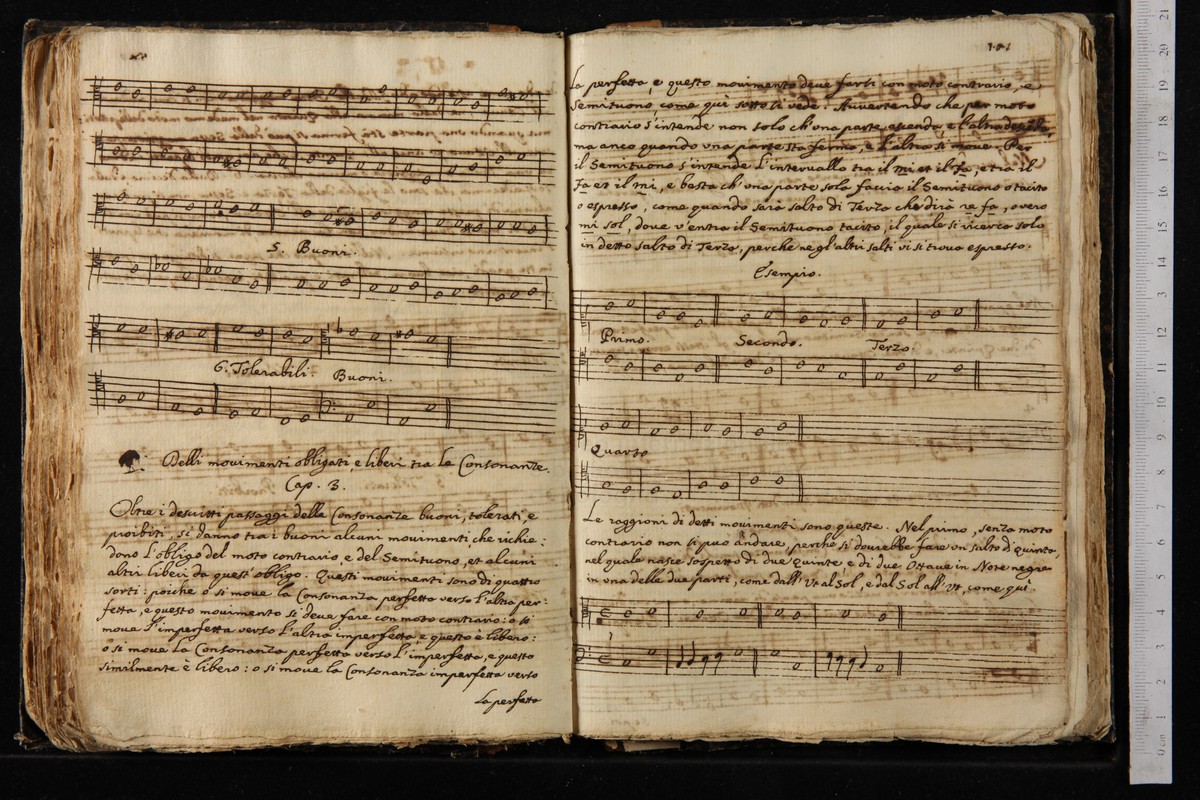 5. Buoni.
6. Tolerabili. Buoni.
Delli movimenti obligati, e liberi tra le Consonanze.
Cap. 3.
Oltre i descritti passaggi delle Consonanze buoni, tolerati, e
proibiti, si danno tra i buoni alcuni movimenti, che richie:
dono l'obligo del moto contrario, e del Semituono, et alcuni
altri liberi da quest'obligo. Questi movimenti sono di quattro
sorti: poiche o si move la Consonanza perfetta verso l'altra per:
fetta, e questo movimento si deve fare con moto contrario: o si
move l'imperfetta verso l'altra imperfetta, e questo è libero:
o si move la Consonanza perfetta verso l'imperfetta, e questo
similmente è libero: o si move la Consonanza imperfetta verso
la perfetta
101
la perfetta, e questo movimento deve farsi con moto contrario, e
Semituono, come quì sotto si vede. Avvertendo che per moto
contrario s'intende non solo ch'una parte ascenda, e l'altra
ma anco quando una parte sta ferma, e l'altra si move. Per
il Semituono s'intende l'intervallo tra il mi et il fa, e tra il
fa et il mi, e basta ch'una parte sola faccia il Semituono o tacito
o espresso, come quando sarà salto di Terza che dirà re fa, overo
mi sol, dove v'entra il Semituono tacito, il quale si ricerca solo
in detto salto di Terza, perche negl'altri salti vi si trova espresso.
Esempio.
Primo. Secondo. Terzo.
Quarto
Le raggioni di detti movimenti sono queste. Nel primo, senza moto
contrario non si può andare, perche si dovrebbe fare un salto di quinta,
nel quale nasce sospetto di due Quinte e di due Ottave in Note negre
in una delle due parti, come dall'Ut al Sol, e dal Sol all'Ut, come quì.